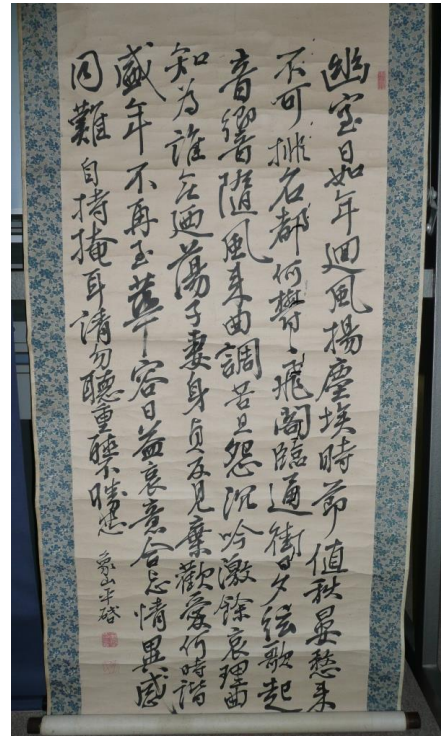 幽室日如年迴風揚塵埃時節值秋晏愁来
不可排名都何欝々飛閣臨通衢日夕弦歌起
音響隨風来曲調苦且怨沉吟激餘哀理曲
知為誰云迺蕩子妻身貞反見棄歡愛何時諧
盛年不再至華容日益衰意合忘情異感
因難自持掩耳請勿聽重聽不勝悲 象山平啓